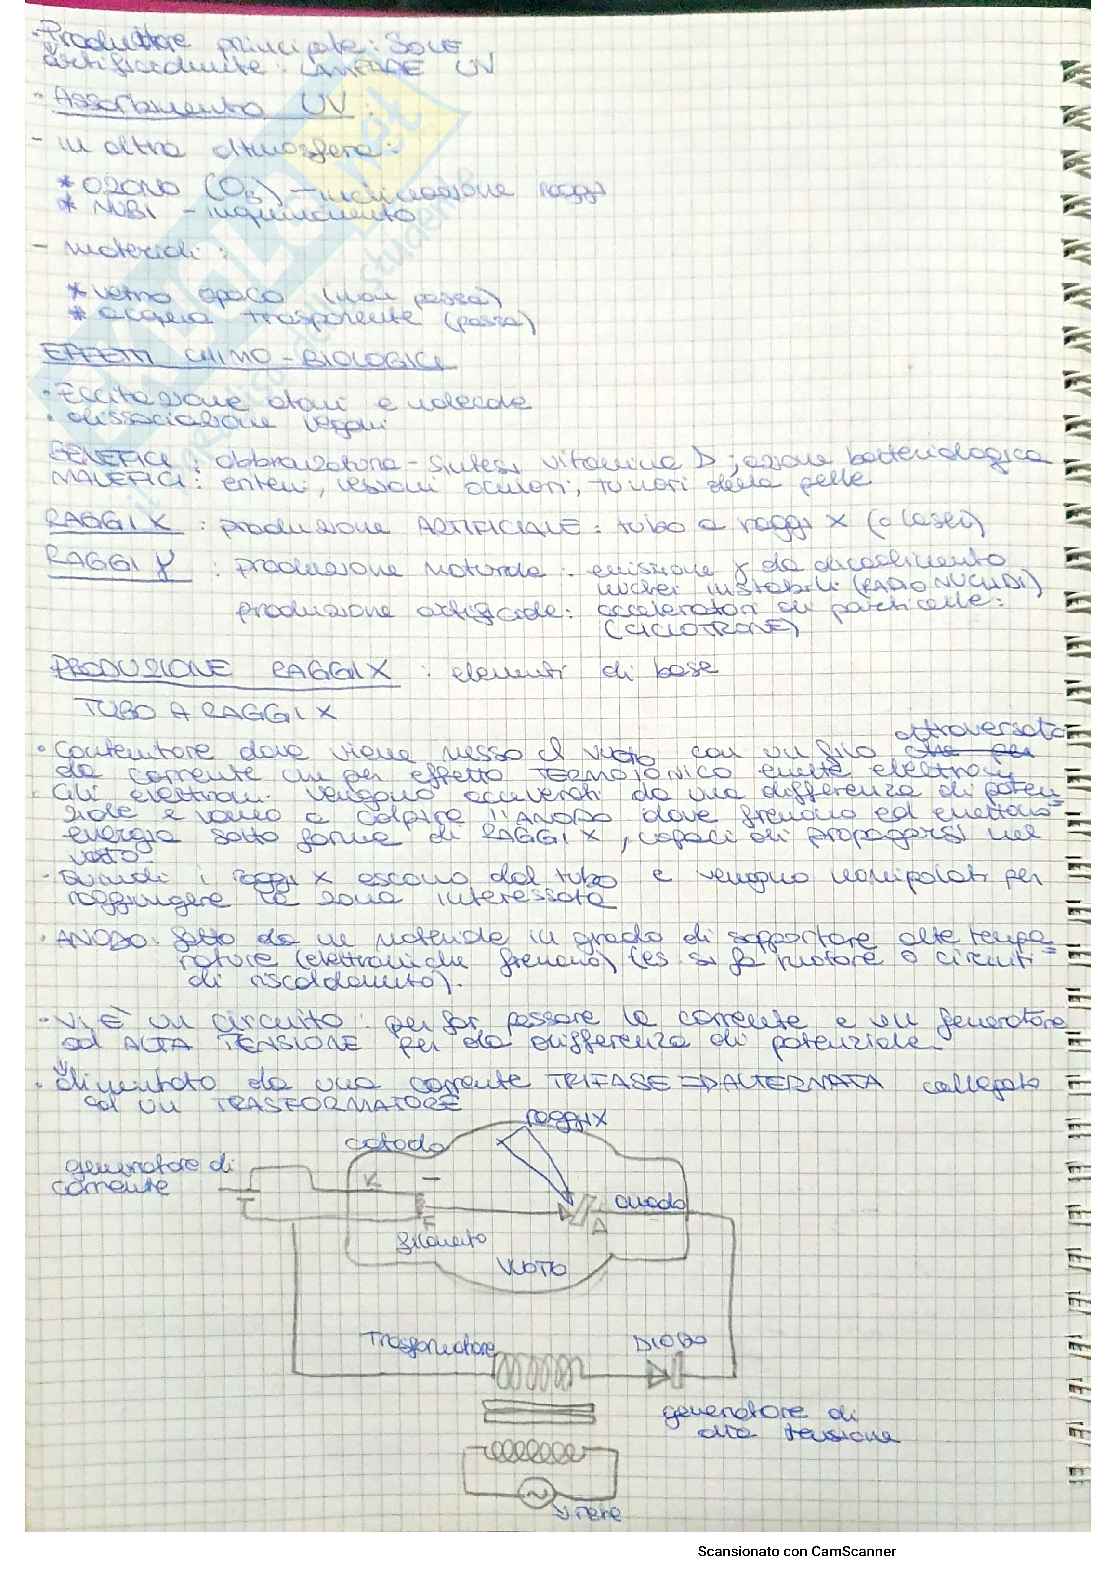 · Produttore principale: SOLE
artificialmente: LAMPADE UV
· Assorbimento UV:
- in altra atmosfera:
* OZONO (O3) - inclinazione raggi
* NUBI - inquinamento
- materiali:
* vetro opaco (non passa)
* acqua trasparente (passa)
EFFETTI CHIMO-BIOLOGICI
· Eccitazione atomi e molecole
· dissociazione legami
BENEFICI: abbronzatura - sintesi vitamina D; azione batteriologica
MALEFICI: eritemi, lesioni oculari, tumori della pelle
RAGGI X: produzione ARTIFICIALE: tubo a raggi X (o laser)
RAGGI γ: produzione naturale: emissione γ da decadimento
nuclei instabili (RADIONUCLIDI)
produzione artificiale: acceleratori di particelle:
(CICLOTRONE)
PRODUZIONE RAGGI X: elementi di base
TUBO A RAGGI X
attraversato
· Contenitore dove viene messo il vuoto con un filo che per
da corrente per effetto TERMOIONICO emette elettroni
· Gli elettroni vengono accelerati da una differenza di poten
ziale e vanno a colpire l'ANODO dove frenano ed emettono
energia sotto forma di RAGGI X, capaci di propagarsi nel
vuoto
· Quindi i raggi X escono dal tubo e vengono manipolati per
raggiungere la zona interessata
· ANODO: fatto da un materiale in grado di sopportare alte tempe
rature (elettroni che frenano) (es si fa ruotare o circuiti
di riscaldamento).
· Vi È un circuito: per far passare la corrente e un generatore
ad ALTA TENSIONE per da differenza di potenziale.
· alimentato da una corrente TRIFASE ED ALTERNATA collegato
ad un TRASFORMATORE
raggi X
catodo
generatore di
corrente
K
-
anodo
A
F
filamento
VUOTO
Trasformatore
DIODO
generatore di
alta tensione
~
rete
Scansionato con CamScanner